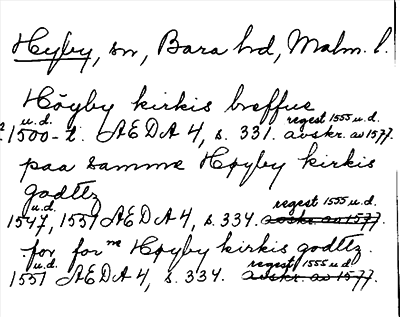 Hyby, sn, Bara hd, Malm. l.
Höyby kirkis breffue
u.d. regest 1555 u.d.
1500-t. AEDA 4, s. 331. avskr. av 1577.
paa samme Høyby kirkis
godtz
u.d. regest 1555 u.d.
1547, 1551 AEDA 4, s. 334. avskr. av 1577.
for forne Høyby kirkis godtz.
u.d. regest 1555 u.d.
1551 AEDA 4, s. 334. avskr. av 1577.